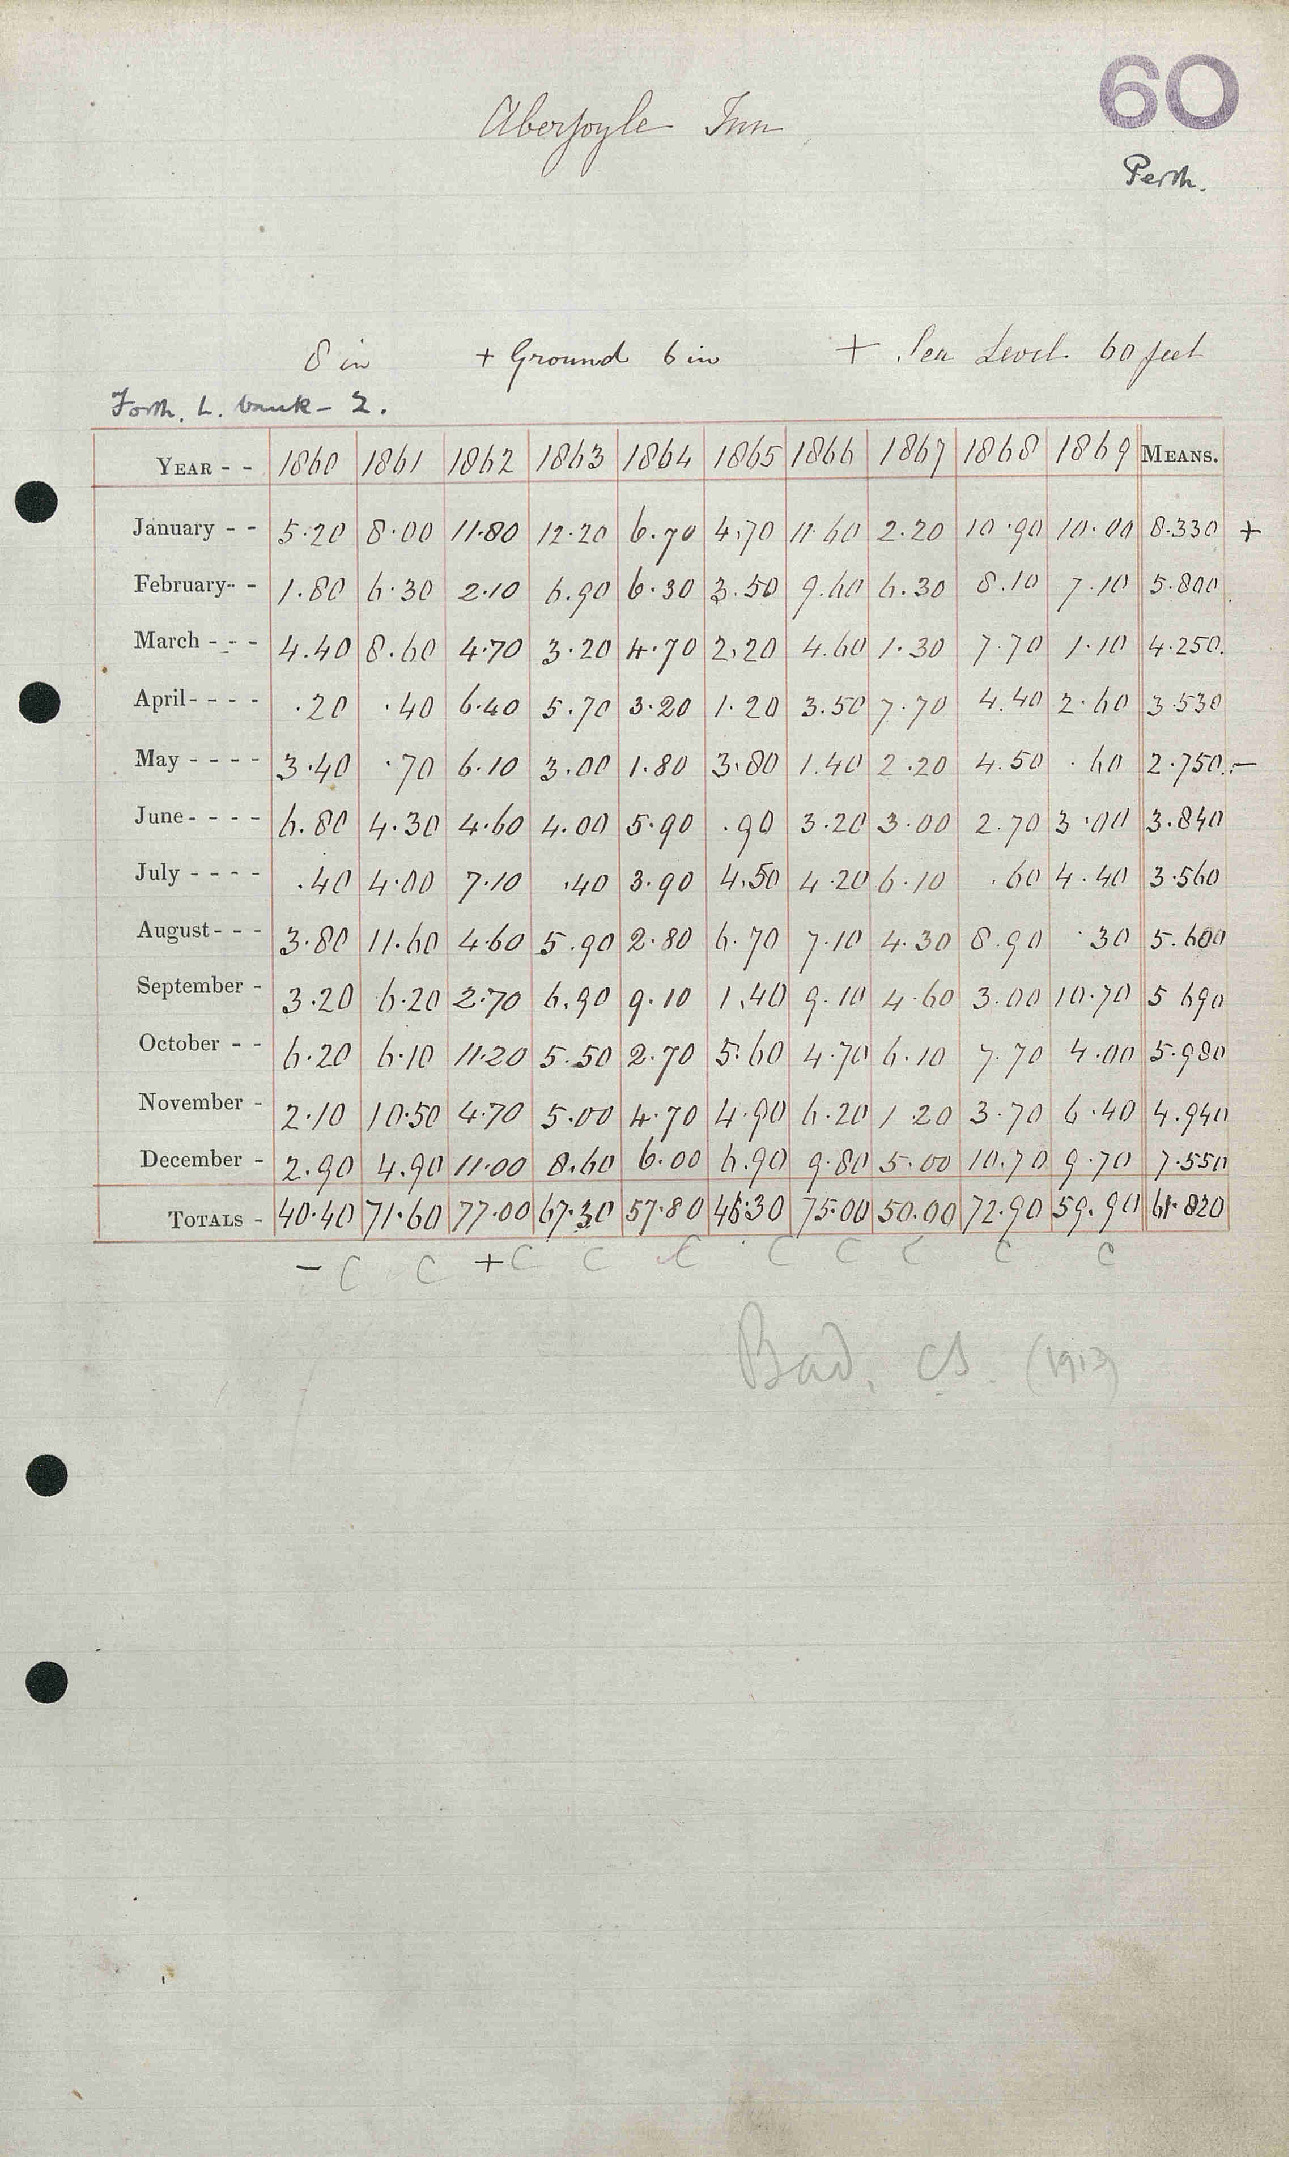 60
Aberfoyle Inn
Perth.
8 in + Ground 6 in + Sea Level 60 feet
Forth. L. bank - 2.
YEAR - - 1860 1861 1862 1863 1864 1865 1866 1867 1868 1869 MEANS.
January - - 5.20 8.00 11.80 12.20 6.70 4.70 11.60 2.20 10.90 10.00 8.330 +
February- - 1.80 6.30 2.10 6.90 6.30 3.50 9.60 6.30 8.10 7.10 5.800
March - - - 4.40 8.60 4.70 3.20 4.70 2.20 4.60 1.30 7.70 1.10 4.250.
April- - - - .20 .40 6.40 5.70 3.20 1.20 3.50 7.70 4.40 2.60 3.530
May - - - - 3.40 .70 6.10 3.00 1.80 3.80 1.40 2.20 4.50 .60 2.750. -
June- - - - 6.80 4.30 4.60 4.00 5.90 .90 3.20 3.00 2.70 3.00 3.840
July - - - - .40 4.00 7.10 .40 3.90 4.50 4.20 6.10 .60 4.40 3.560
August- - - 3.80 11.60 4.60 5.90 2.80 6.70 7.10 4.30 8.90 .30 5.600
September - 3.20 6.20 2.70 6.90 9.10 1.40 9.10 4.60 3.00 10.70 5 690
October - - 6.20 6.10 11.20 5.50 2.70 5.60 4.70 6.10 7.70 4.00 5.980
November - 2.10 10.50 4.70 5.00 4.70 4.90 6.20 1.20 3.70 6.40 4.940
December - 2.90 4.90 11.00 8.60 6.00 6.90 9.80 5.00 10.70 9.70 7.550
TOTALS - 40.40 71.60 77.00 67.30 57.80 46.30 75.00 50.00 72.90 59.90 61.820
- C C + C C C C C C C C
Bad. CS. (1913)